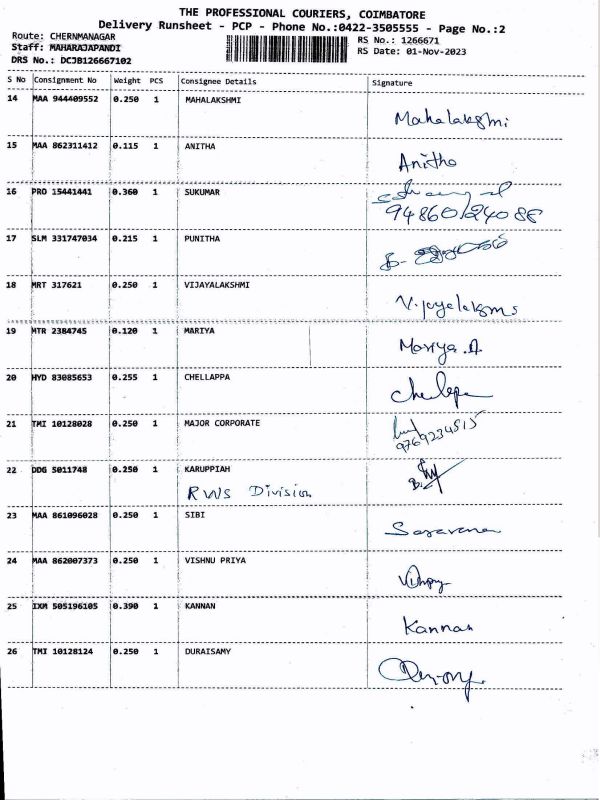 THE PROFESSIONAL COURIERS, COIMBATORE
Delivery Runsheet - PCP - Phone No.:0422-3505555 - Page No.:2
Route: CHERNMANAGAR
RS No.: 1266671
Staff: MAHARAJAPANDI
RS Date: 01-Nov-2023
DRS No.: DCJB126667102
S No Consignment No Weight PCS Consignee Details Signature
14 MAA 944409552 0.250 1 MAHALAKSHMI
Mahalakshmi
15 MAA 862311412 0.115 1 ANITHA
Anitha
16 PRO 15441441 0.360 1 SUKUMAR
94860124088
17 SLM 331747034 0.215 1 PUNITHA
18 MRT 317621 0.250 1 VIJAYALAKSHMI
Vijayalakshmi
19 MTR 2384745 0.120 1 MARIYA
Mariya.A
20 HYD 83085653 0.255 1 CHELLAPPA
21 TMI 10128028 0.250 1 MAJOR CORPORATE
9769234515
22 DDG 5011748 0.250 1 KARUPPIAH
RWS Division
23 MAA 861096028 0.250 1 SIBI
Saravana
24 MAA 862007373 0.250 1 VISHNU PRIYA
25 IXM 505196105 0.390 1 KANNAN
Kannan
26 TMI 10128124 0.250 1 DURAISAMY